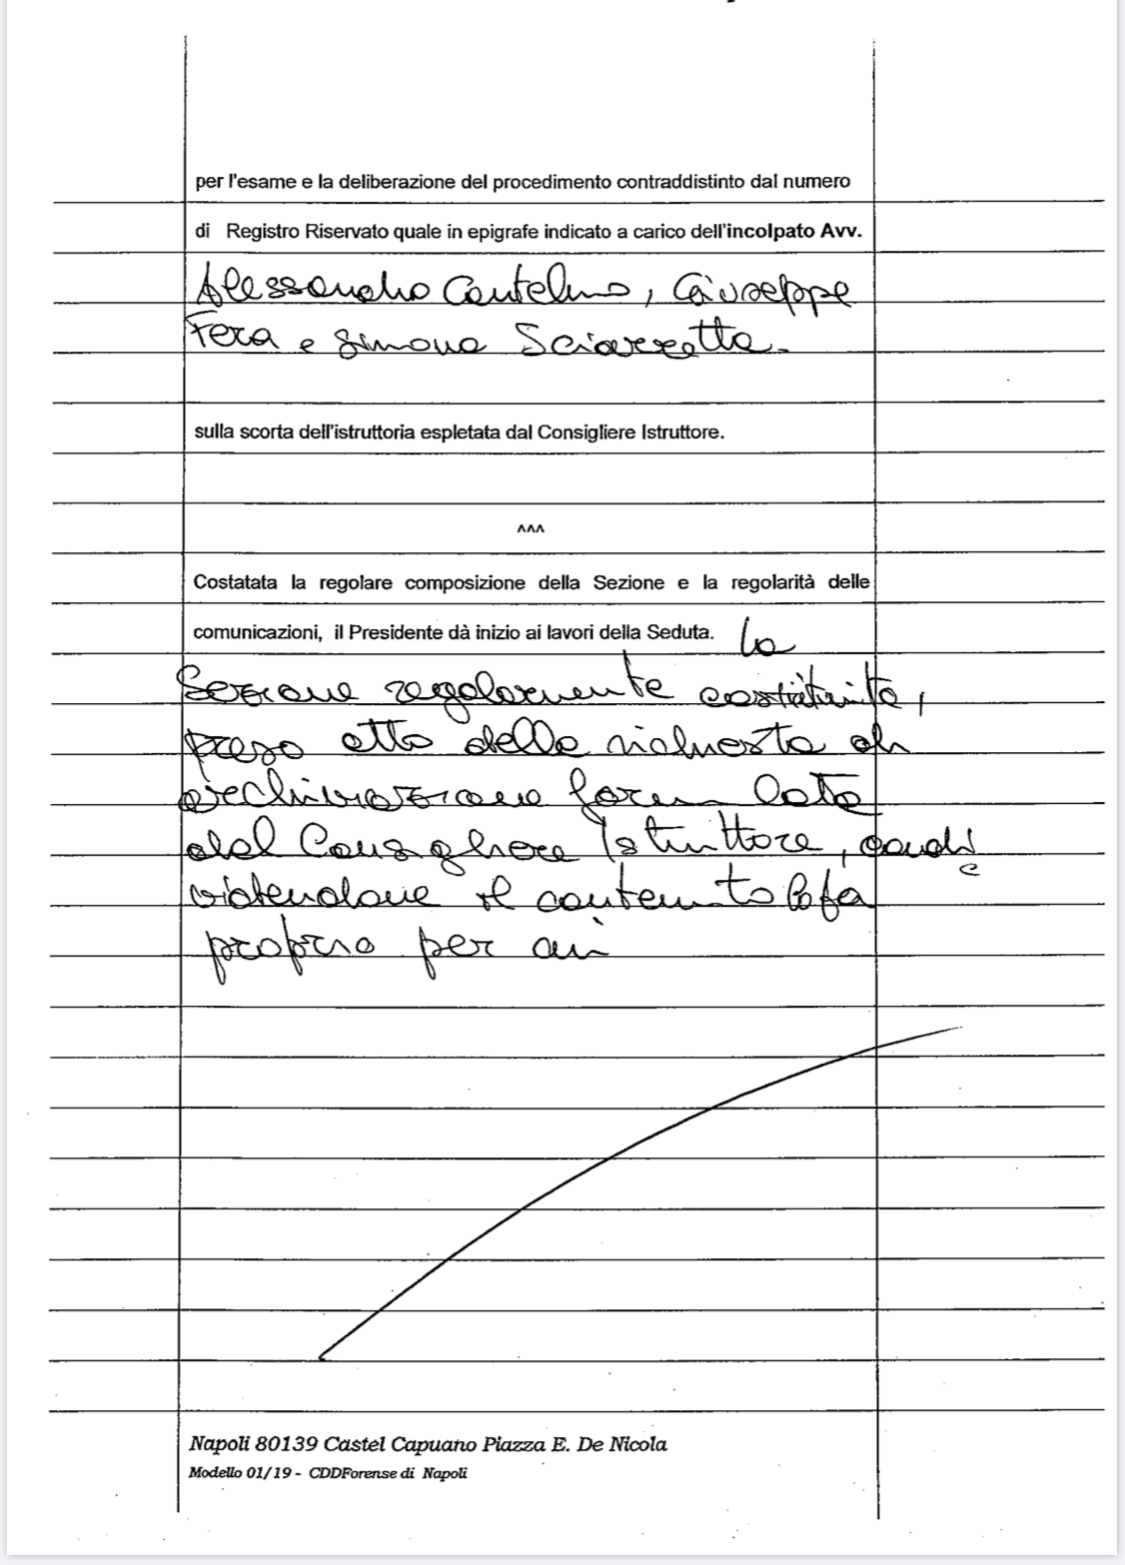 per l'esame e la deliberazione del procedimento contraddistinto dal numero
di Registro Riservato quale in epigrafe indicato a carico dell'incolpato Avv.
Alessandro Cantelmo, Giuseppe
Fera e Simona Sciarretta.
sulla scorta dell'istruttoria espletata dal Consigliere Istruttore.
^^^
Costatata la regolare composizione della Sezione e la regolarità delle
comunicazioni, il Presidente dà inizio ai lavori della Seduta. La
Sezione regolarmente costituita,
preso atto della richiesta di
archiviazione formulata
dal Consigliere Istruttore, condi
videndone il contenuto lo fa
proprio per cui
Napoli 80139 Castel Capuano Piazza E. De Nicola
Modello 01/19 - CDDForense di Napoli